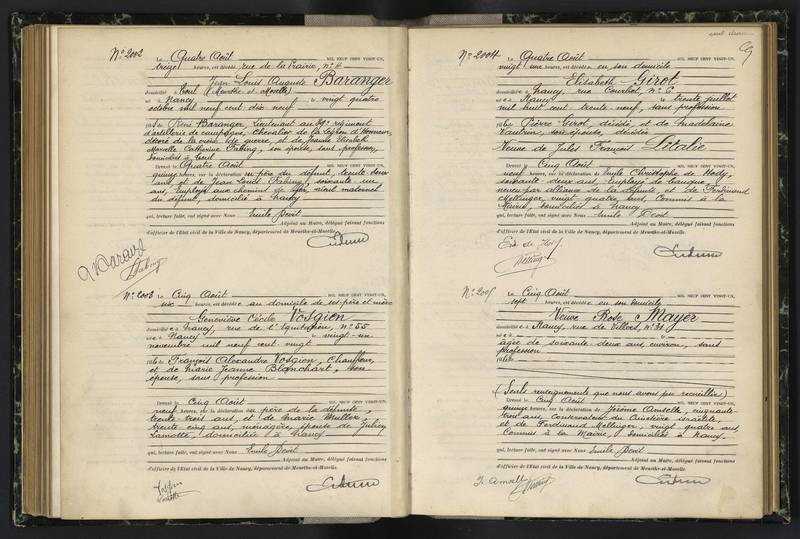 N° 2002
Le Quatre Août MIL NEUF CENT VINGT-UN,
treize heures, est décédé rue de la Prairie, n° 4
Jean Louis Auguste Baranger
domicilié à Toul (Meurthe-et-Moselle)
né à Nancy le vingt quatre
octobre mil neuf cent dix neuf
fils de René Baranger, Lieutenant au régiment
d'artillerie de campagne, Chevalier de la Légion d'Honneur,
décoré de la croix de guerre, et de Jeanne Elisabeth
Marcelle Catherine Fabing, son épouse, sans profession,
domiciliés à Toul
Dressé le Quatre Août MIL NEUF CENT VINGT-UN,
quinze heures, sur la déclaration du père du défunt, trente deux
ans et de Jean Louis Fabing, soixante un
ans, employé aux chemins de fer, aïeul maternel
du défunt, domicilié à Nancy
qui, lecture faite, ont signé avec Nous Emile Devit
Adjoint au Maire, délégué faisant fonctions
d'officier de l'Etat civil de la Ville de Nancy, département de Meurthe-et-Moselle.
Fabing
N° 2003 Le Cinq Août MIL NEUF CENT VINGT-UN,
six heures, est décédée au domicile de ses père et mère
Geneviève Cécile Vosgien
domiciliée à Nancy, rue de l'Equitation, n° 55
née à Nancy le vingt-un
novembre mil neuf cent vingt
fille de François Alexandre Vosgien, Chauffeur,
et de Marie Jeanne Blanchart, son
épouse, sans profession
Dressé le Cinq Août MIL NEUF CENT VINGT-UN,
neuf heures, sur la déclaration du père de la défunte,
trente trois ans, et de Marie Muller,
trente cinq ans, ménagère, épouse de Julien
Lamotte, domiciliée à Nancy
qui, lecture faite, ont signé avec Nous Emile Devit
Adjoint au Maire, délégué faisant fonctions
d'officier de l'Etat civil de la Ville de Nancy, département de Meurthe-et-Moselle.
N° 2004 Le Quatre Août MIL NEUF CENT VINGT-UN,
vingt une heures, est décédée en son domicile
Elisabeth Girot
domiciliée à Nancy, rue Courbet, n° 6
née à Nancy le trente juillet
mil huit cent trente-neuf, sans profession
fille de Pierre Girot, décédé, et de Madeleine
Vautrin, son épouse, décédée
Veuve de Jules François Litalie
Dressé le Cinq Août MIL NEUF CENT VINGT-UN,
neuf heures, sur la déclaration de Emile Christophe de Hody,
soixante-deux ans, employé de banque,
neveu par alliance de la défunte, et de Ferdinand
Mellinger, vingt quatre ans, Commis à la
Mairie, domiciliés à Nancy
qui, lecture faite, ont signé avec Nous Emile Devit
Adjoint au Maire, délégué faisant fonctions
d'officier de l'Etat civil de la Ville de Nancy, département de Meurthe-et-Moselle.
N° 2005 Le Cinq Août MIL NEUF CENT VINGT-UN,
sept heures, est décédée en son domicile
Veuve Rose Mayer
domiciliée à Nancy, rue de Villers, n° 31
née à le
âgée de soixante-deux ans environ, sans
profession
fille
(Seuls renseignements que nous avons pu recueillir)
Dressé le Cinq Août MIL NEUF CENT VINGT-UN,
quinze heures, sur la déclaration de Jérôme Amselle, cinquante-
trois ans, Conservateur du Cimetière israélite,
et de Ferdinand Mellinger, vingt quatre ans,
Commis à la Mairie, domiciliés à Nancy.
qui, lecture faite, ont signé avec Nous Emile Devit
Adjoint au Maire, délégué faisant fonctions
d'officier de l'Etat civil de la Ville de Nancy, département de Meurthe-et-Moselle.